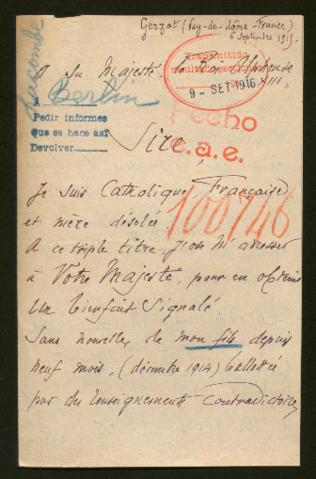 Gerzat (Puy-de-dôme-France)
6 Septembre 1915.
A Sa Majesté le Roi Alphonse
XIII,
Transmitido
9 - SET 1916
Lacombe
A Berlin
Pedir informes
que se hace así
Devolver
Fecho
c.a.e.
Sire,
100746
Je suis Catholique, Française
et mère désolée.
A ce triple titre j'ose m'adresser
à Votre Majesté, pour en obtenir
un bienfait signalé.
Sans nouvelles de mon fils depuis
neuf mois, (décembre 1914) ballottée
par des renseignements contradictoires,